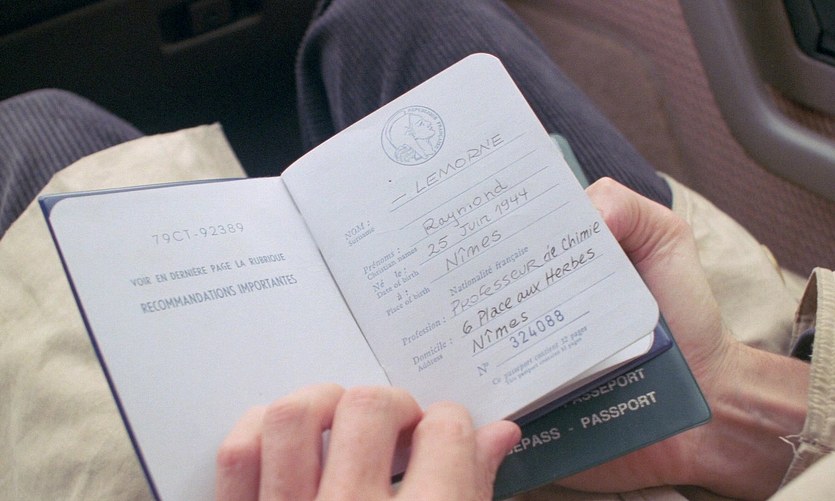 79CT-92389
VOIR EN DERNIÈRE PAGE LA RUBRIQUE
RECOMMANDATIONS IMPORTANTES
NOM : LEMORNE
Surname
Prénoms : Raymond
Christian names
Né le : 25 Juin 1944
Date of birth
à : Nîmes
Place of birth
Nationalité française
Profession : Professeur de Chimie
Domicile : 6 Place aux Herbes
Address Nîmes
N° 324088
Ce passeport contient 32 pages
PASSEPORT
PASS - PASSPORT